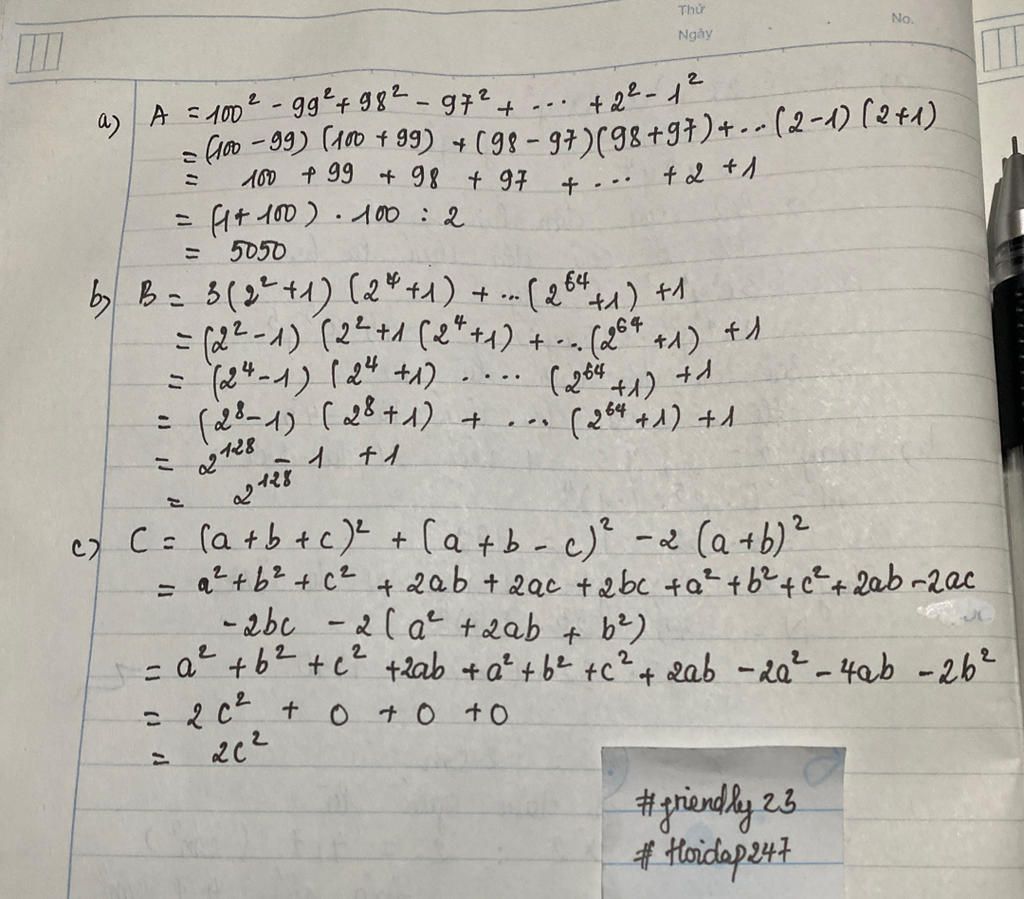 Thứ
Ngày
No.
a) A = 100² - 99² + 98² - 97² + ... + 2² - 1²
= (100 - 99) (100 + 99) + (98 - 97)(98 + 97) + ... (2 - 1) (2 + 1)
= 100 + 99 + 98 + 97 + ... + 2 + 1
= (1 + 100) . 100 : 2
= 5050
b) B = 3(2² + 1) (2⁴ + 1) + ... (2⁶⁴ + 1) + 1
= (2² - 1) (2² + 1 (2⁴ + 1) + ... (2⁶⁴ + 1) + 1
= (2⁴ - 1) (2⁴ + 1) .... (2⁶⁴ + 1) + 1
= (2⁸ - 1) (2⁸ + 1) + ... (2⁶⁴ + 1) + 1
= 2¹²⁸ - 1 + 1
= 2¹²⁸
c) C = (a + b + c)² + (a + b - c)² - 2 (a + b)²
= a² + b² + c² + 2ab + 2ac + 2bc + a² + b² + c² + 2ab - 2ac
- 2bc - 2 (a² + 2ab + b²)
= a² + b² + c² + 2ab + a² + b² + c² + 2ab - 2a² - 4ab - 2b²
= 2c² + 0 + 0 + 0
= 2c²
#friendly 23
# Hoidap247